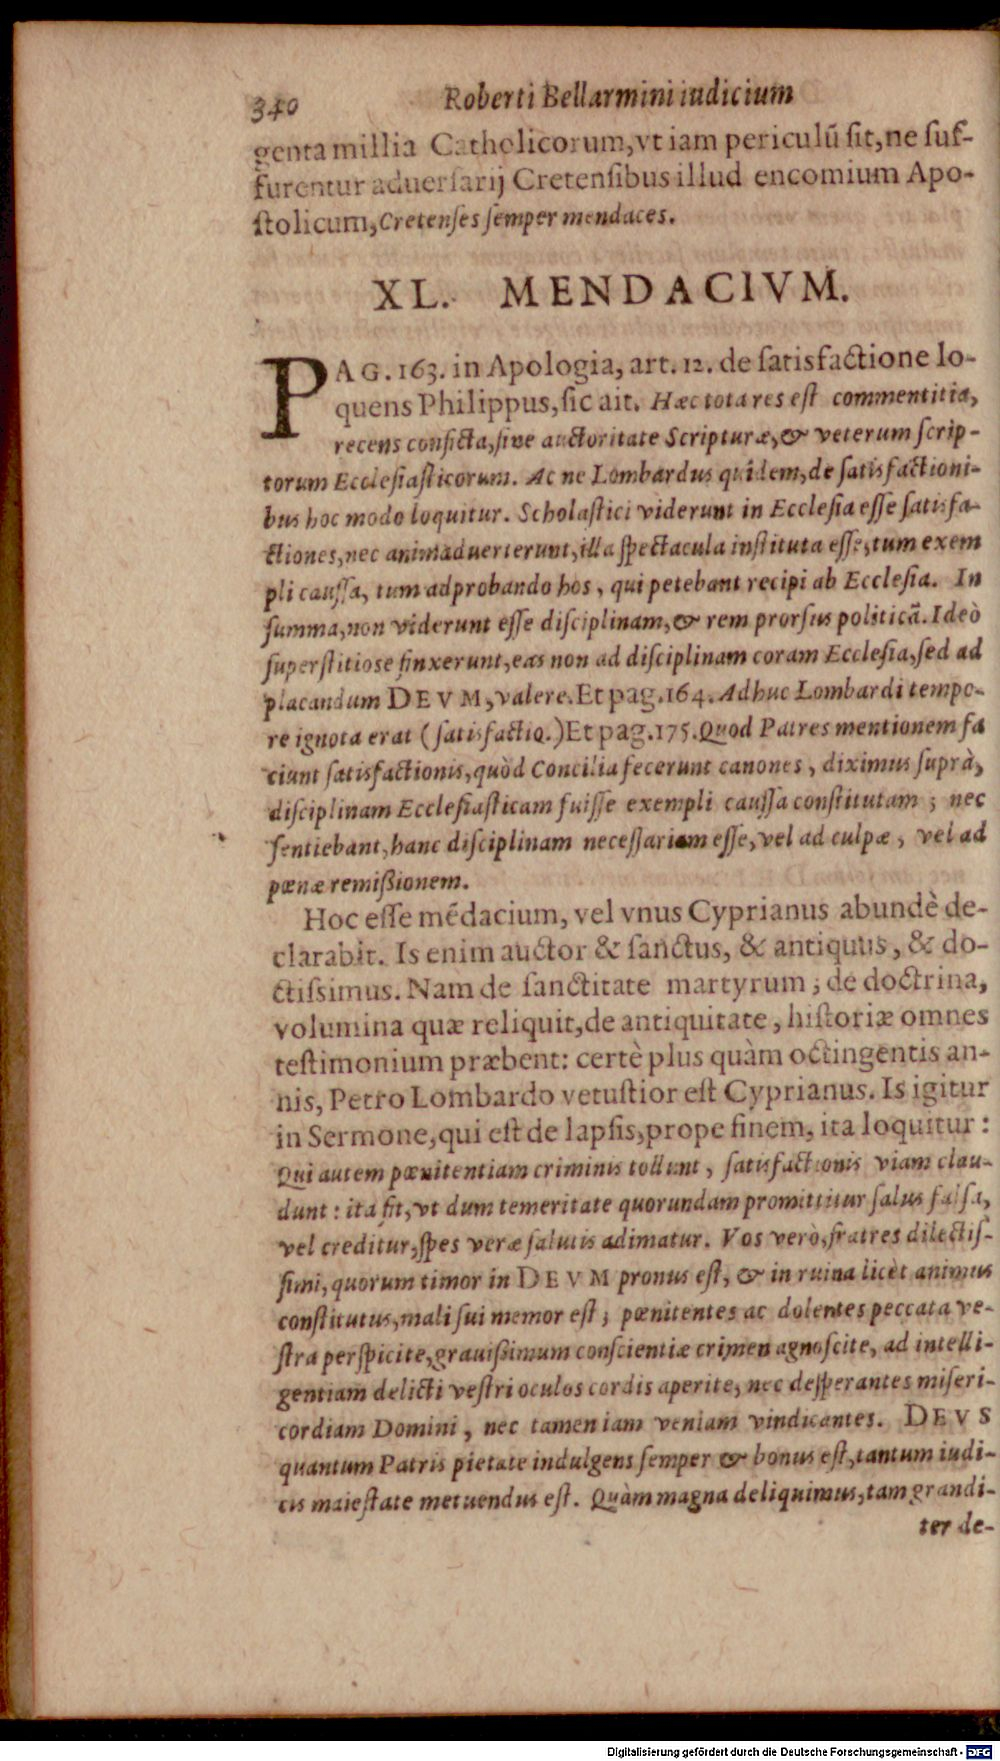 340 Roberti Bellarmini iudicium
genta millia Catholicorum, vt iam periculũ ſit, ne ſuf-
furentur aduerſarij Cretenſibus illud encomium Apo-
ſtolicum, Cretenſes ſemper mendaces.
XL. MENDACIVM.
PAG. 163. in Apologia, art. 12. de ſatisfactione lo-
quens Philippus, ſic ait. Hæc tota res eſt commentitia,
recens conficta, ſine auctoritate Scripturæ, & veterum ſcrip-
torum Eccleſiaſticorum. Ac ne Lombardus quidem, de ſatisfactioni-
bus hoc modo loquitur. Scholaſtici viderunt in Eccleſia eſſe ſatisfa-
ctiones, nec animaduerterunt, illa ſpectacula inſtituta eſſe, tum exem
pli cauſſa, tum ad probando hos, qui petebant recipi ab Eccleſia. In
ſumma, non viderunt eſſe diſciplinam, & rem prorſus politicã. Ideò
ſuperſtitiose finxerunt, eas non ad diſciplinam coram Eccleſia, ſed ad
placandum DEVM, valere. Et pag. 164. Adhuc Lombardi tempo-
re ignota erat (ſatisfactio.) Et pag. 175. Quod Patres mentionem fa
ciunt ſatisfactionis, quòd Concilia fecerunt canones, diximus ſuprà,
diſciplinam Eccleſiaſticam fuiſſe exempli cauſſa conſtitutam; nec
ſentiebant, hanc diſciplinam neceſſariam eſſe, vel ad culpæ, vel ad
pœnæ remißionem.
Hoc eſſe mẽdacium, vel vnus Cyprianus abundè de-
clarabit. Is enim auctor & ſanctus, & antiquus, & do-
ctiſsimus. Nam de ſanctitate martyrum; de doctrina,
volumina quæ reliquit, de antiquitate, hiſtoriæ omnes
teſtimonium præbent: certè plus quàm octingentis an-
nis, Petro Lombardo vetuſtior eſt Cyprianus. Is igitur
in Sermone, qui eſt de lapſis, prope finem, ita loquitur:
Qui autem pœnitentiam criminis tollunt, ſatisfactionis viam clau-
dunt: ita fit, vt dum temeritate quorundam promittitur ſalus falſa,
vel creditur, ſpes veræ ſalutis adimatur. Vos verò, fratres dilectiſ-
ſimi, quorum timor in DEVM pronus eſt, & in ruina licèt animus
conſtitutus, mali ſui memor eſt; pœnitentes ac dolentes peccata ve-
ſtra perſpicite, grauißimum conſcientiæ crimen agnoſcite, ad intelli-
gentiam delicti veſtri oculos cordis aperite, nec deſperantes miſeri-
cordiam Domini, nec tamen iam veniam vindicantes. DEVS
quantum Patris pietate indulgens ſemper & bonus eſt, tantum iudi-
cis maieſtate metuendus eſt. Quàm magna deliquimus, tam grandi-
ter de-
Digitalisierung gefördert durch die Deutsche Forschungsgemeinschaft - DFG